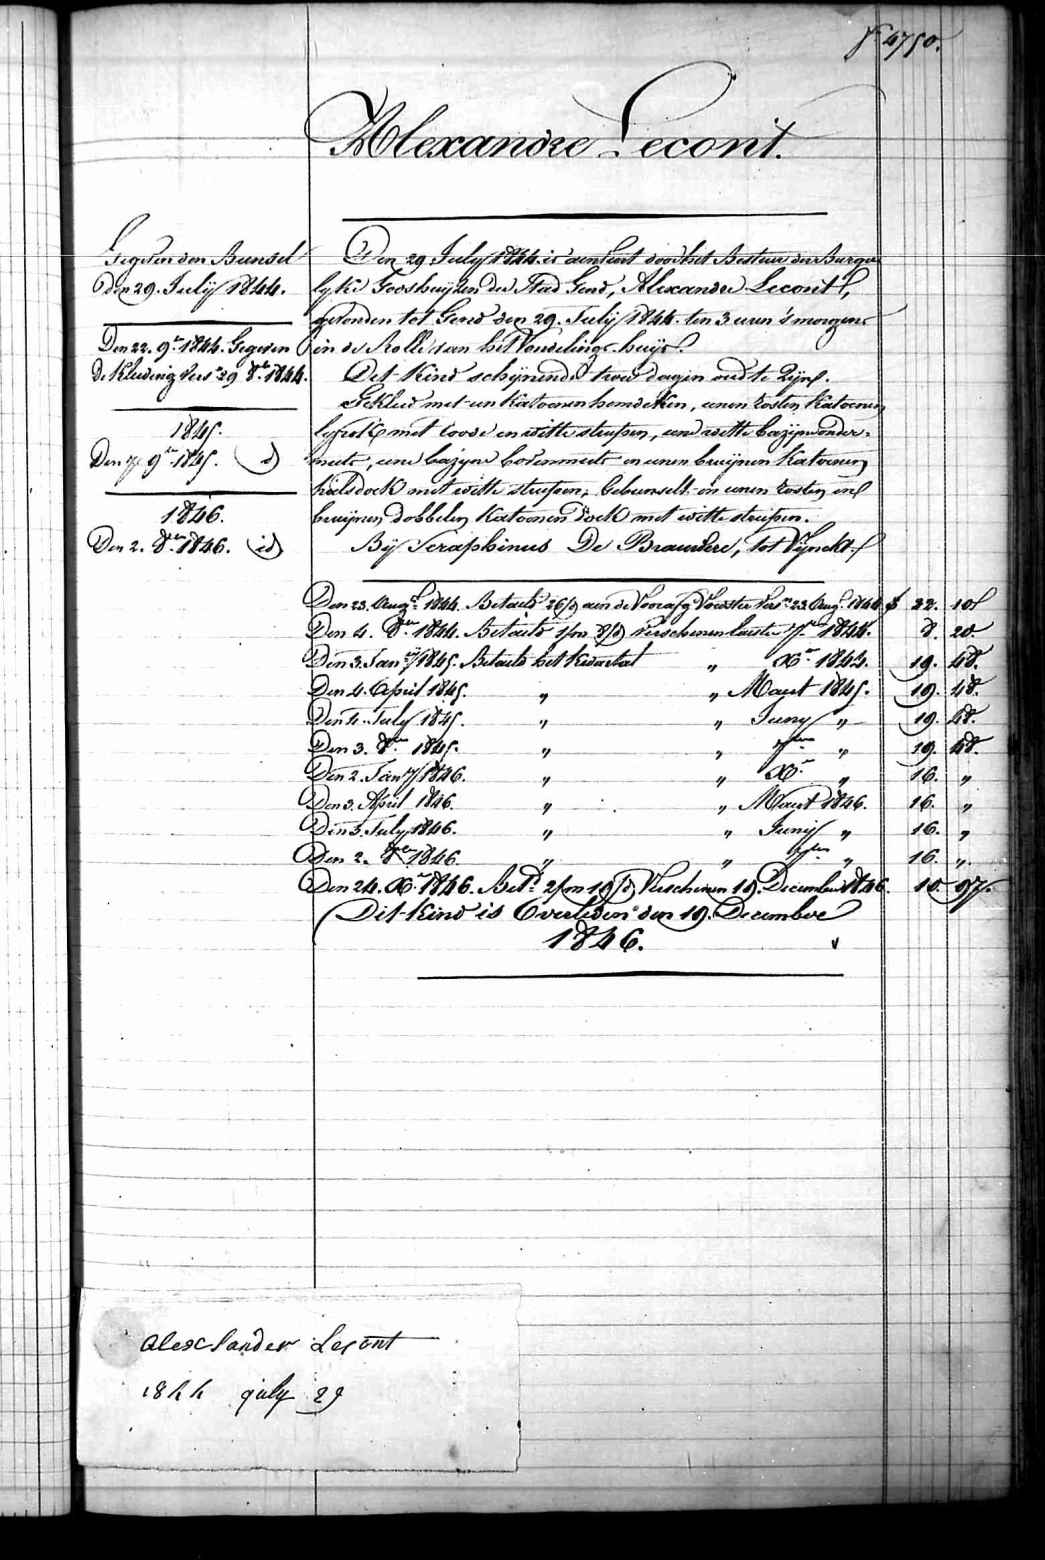 4750.
Alexandre Lecont.
Gegeven den Bunsel
den 29. Julij 1844.
Den 22. 9br 1844. Gegeven
de Kleding Vers 29 8br 1844.
1845.
Den 7 9br 1845. (id)
1846.
Den 2. 8bre 1846. (id)
Den 29 July 1844 is aenveert door het Bestuer der Burger-
lyke Godshuijzen der Stad Gend, Alexandre Lecont,
gevonden tot Gend den 29. Julij 1844. ten 3 uren 's morgens
in de Rolle van het Vondelings-huijs.
Det Kind schijnende twee dagen oud te Zijn.
Gekleed met een Katoenen hemdeken, eenen rosten Katoenen
lyfrok met roode en witte streepen, eene witte bazijne onder-
muts, eene bazyne bovenmuts en eenen bruijnen Katoenen
halsdoek met witte streepen, gebunselt in eenen rosten en
bruijnen dobbelen Katoenen doek met witte streepen.
Bij Seraphinus De Brauwere, tot Vijnckt.
Den 23. Augt 1844. Betaeld 26/d aen de Voorafg Voedster Vers 23. Augt 1844 22. 10
Den 4. 8bre 1844. Betaeld verschenen laeste 7bre 1844. 8. 20.
Den 3. Jany 1845. Betaeld het kwartael " Xbr 1844. 19. 48.
Den 4. April 1845. " " Maert 1845. 19. 48.
Den 4. July 1845. " " Juny " 19. 48.
Den 3. 8bre 1845. " " 7bre " 19. 48.
Den 2. Jany 1846. " " Xbr " 16. "
Den 3. April 1846. " " Maert 1846. 16. "
Den 3. July 1846. " " Junij " 16. "
Den 2. 8bre 1846. " " 7bre " 16. "
Den 24. Xbr 1846. Betd 2/m 19/d Verschenen 19. December 1846 10. 97.
Dit Kind is Overleden den 19. December
1846.
Alexsander Lecont
1844 july 29